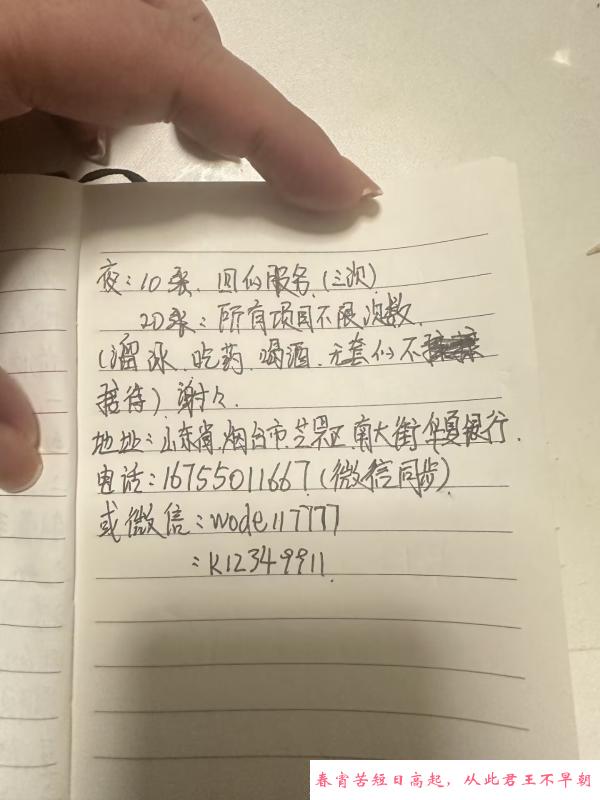 夜：10张、回的服务（三次）
20张：所有项目不限次数
（溜冰、吃药、喝酒、无套的不
接待）谢谢々
地址：山东省、烟台市、芝罘区、南大街华夏银行.
电话：16755011667（微信同步）
或微信：wode117777
：K12349911
春宵苦短日高起，从此君王不早朝